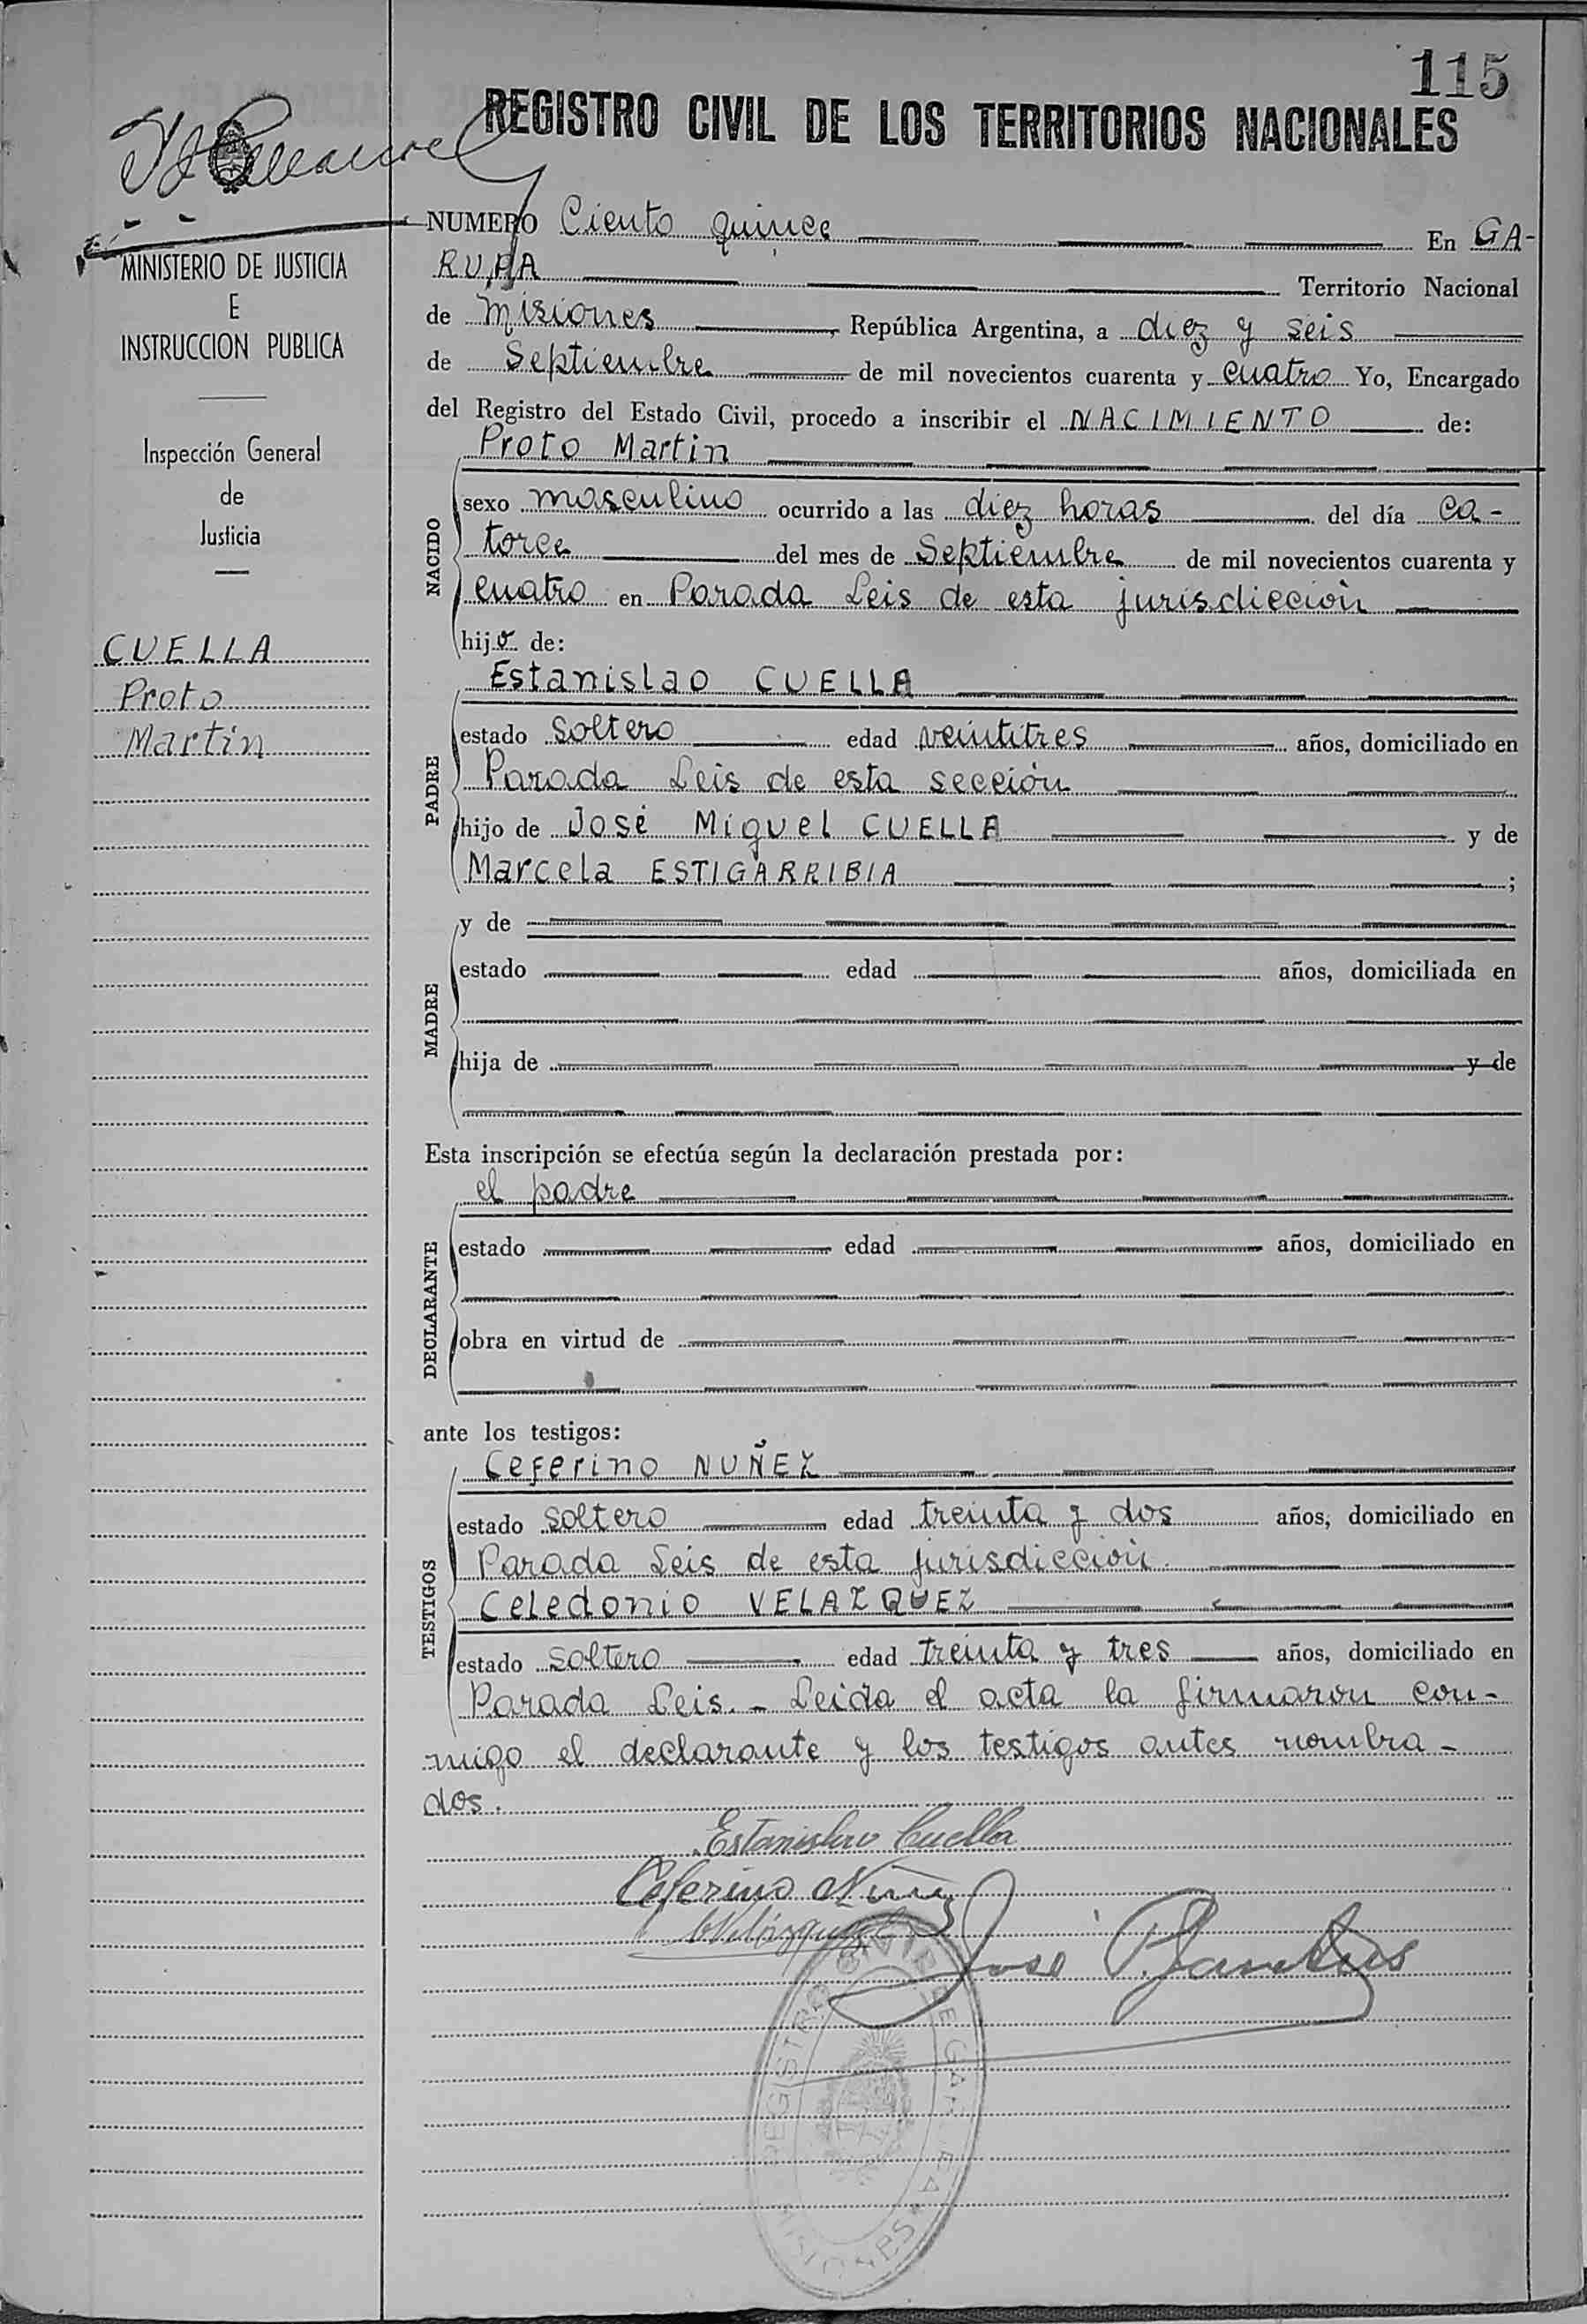 115
REGISTRO CIVIL DE LOS TERRITORIOS NACIONALES
MINISTERIO DE JUSTICIA
E
INSTRUCCION PUBLICA
Inspección General
de
Justicia
CUELLA
Proto
Martín
NUMERO Ciento quince En GA-
RUPA Territorio Nacional
de Misiones, República Argentina, a diez y seis
de Septiembre de mil novecientos cuarenta y cuatro Yo, Encargado
del Registro del Estado Civil, procedo a inscribir el NACIMIENTO de:
Proto Martin
NACIDO
sexo masculino ocurrido a las diez horas del día ca-
torce del mes de Septiembre de mil novecientos cuarenta y
cuatro en Parada Leis de esta jurisdicción
hijo de:
Estanislao CUELLA
PADRE
estado soltero edad veintitres años, domiciliado en
Parada Leis de esta sección
hijo de José Miguel CUELLA y de
Marcela ESTIGARRIBIA ;
MADRE
y de
estado edad años, domiciliada en
hija de y de
Esta inscripción se efectúa según la declaración prestada por:
el padre
DECLARANTE
estado edad años, domiciliado en
obra en virtud de
ante los testigos:
Ceferino NUÑEZ
TESTIGOS
estado soltero edad treinta y dos años, domiciliado en
Parada Leis de esta jurisdicción.
Celedonio VELAZQUEZ
estado soltero edad treinta y tres años, domiciliado en
Parada Leis. - Leida el acta la firmaron con-
migo el declarante y los testigos antes nombra-
dos.
Estanislao Cuella
Ceferino Núñez
C Velázquez
José P.
REGISTRO CIVIL DE GARUPA
MISIONES